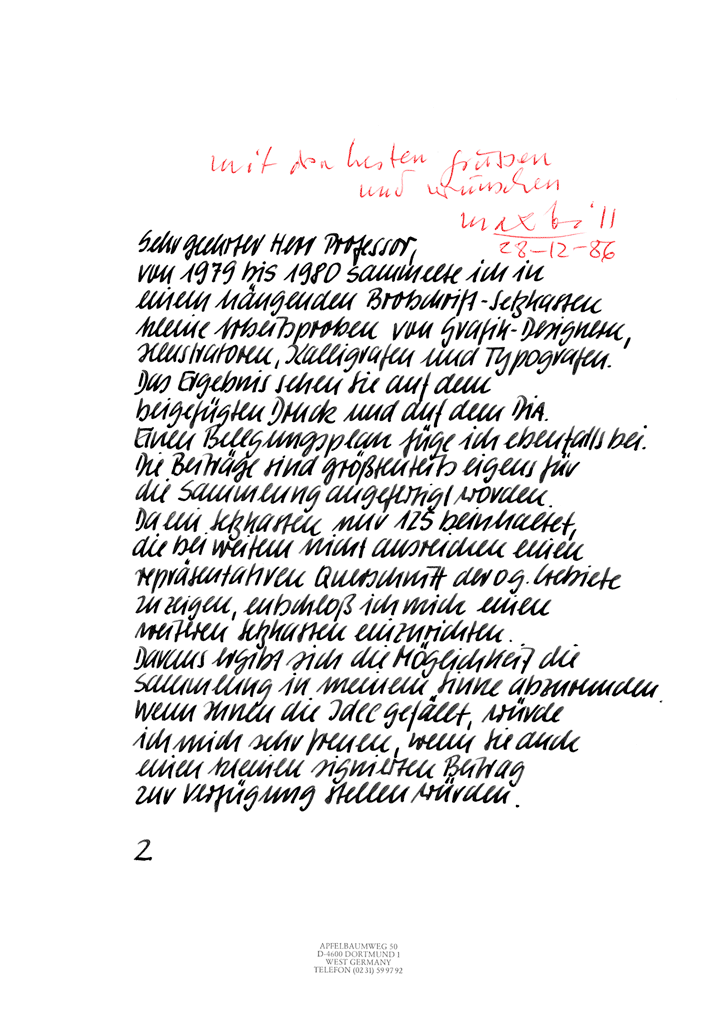 mit den besten grüssen
und wünschen
max bill
28-12-86
Sehr geehrter Herr Professor,
von 1979 bis 1980 sammelte ich in
einem hängenden Brotschrift-Setzkasten
kleine Arbeitsproben von Grafik-Designern,
Illustratoren, Kalligrafen und Typografen.
Das Ergebnis sehen Sie auf dem
beigefügten Druck und auf dem DiA.
Einen Belegungsplan füge ich ebenfalls bei.
Die Beiträge sind größtenteils eigens für
die Sammlung angefertigt worden.
Da ein Setzkasten nur 125 beinhaltet,
die bei weitem nicht ausreichen einen
repräsentativen Querschnitt der o.g. Gebiete
zu zeigen, entschloß ich mich einen
weiteren Setzkasten einzurichten.
Daraus ergibt sich die Möglichkeit die
Sammlung in meinem Sinne abzurunden.
Wenn Ihnen die Idee gefällt, würde
ich mich sehr freuen, wenn Sie auch
einen kleinen signierten Beitrag
zur Verfügung stellen würden.
2
APFELBAUMWEG 50
D-4600 DORTMUND 1
WEST GERMANY
TELEFON (02 31) 59 97 92